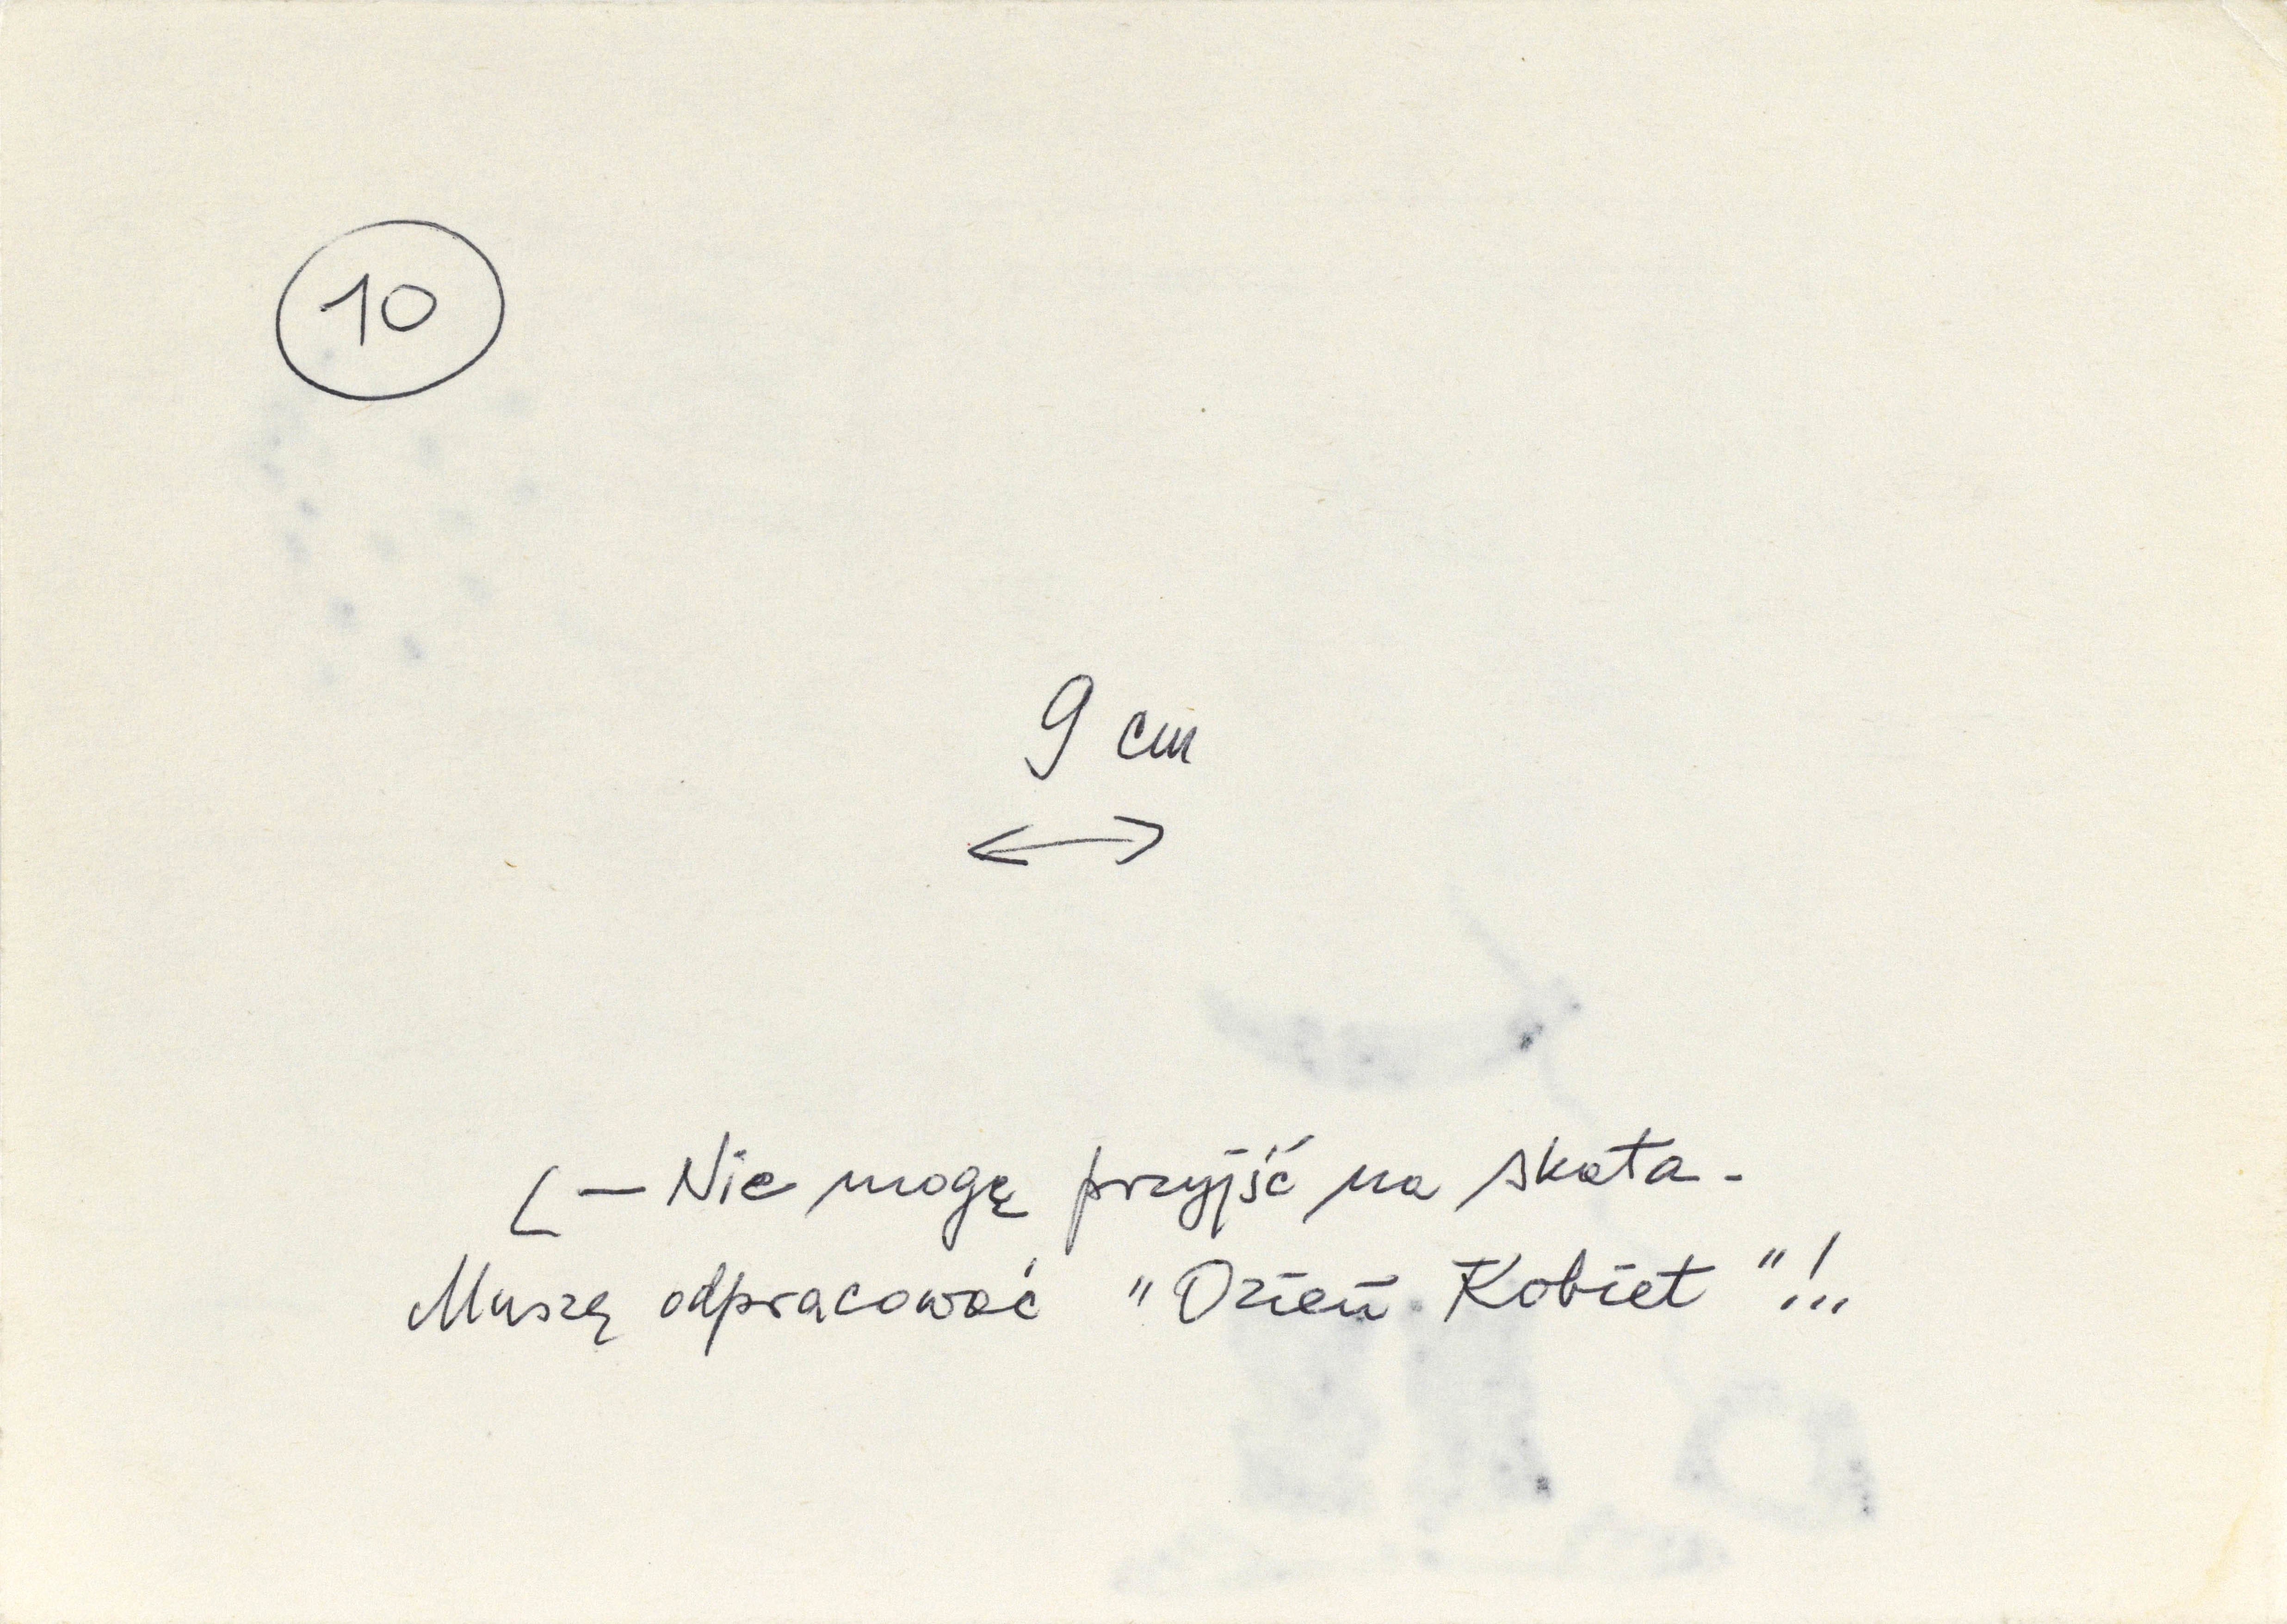 10
9 cm
– Nie mogę przyjść na skata.
Muszę odpracować "Dzień Kobiet"!..